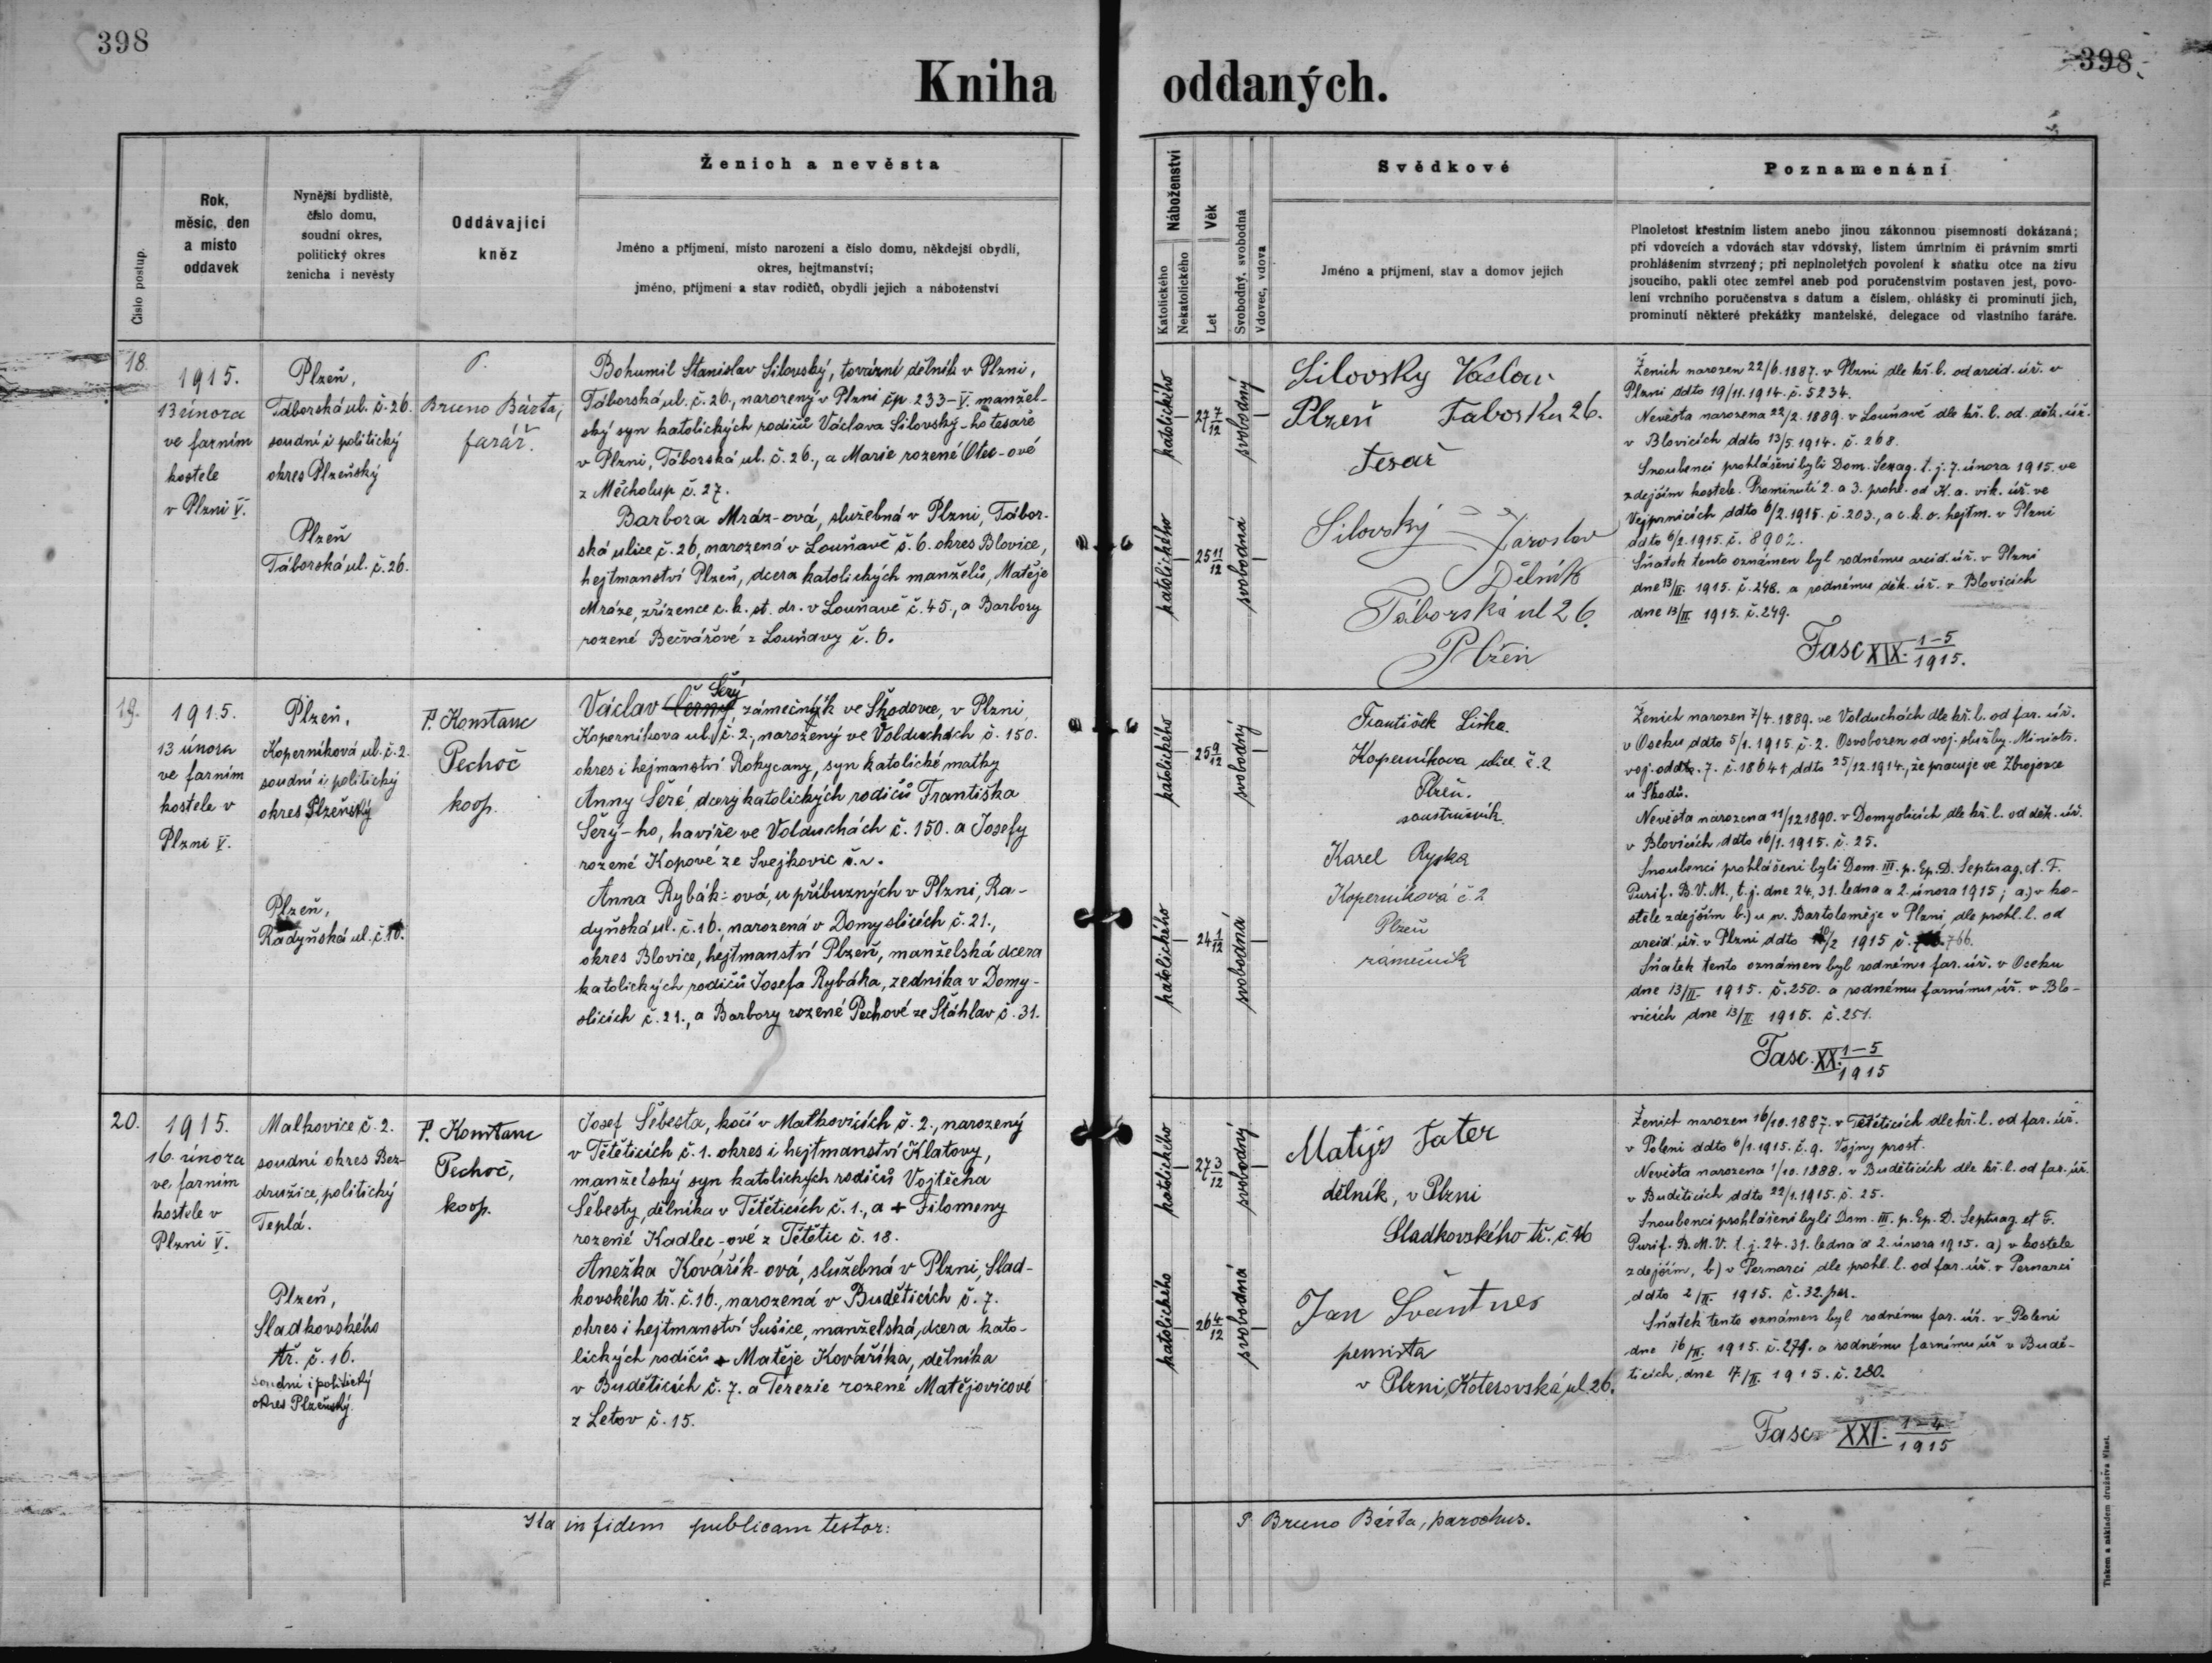 398
398
Kniha oddaných.
Číslo postup.
Rok,
měsíc, den
a místo
oddavek
Nynější bydliště,
číslo domu,
soudní okres,
politický okres
ženicha i nevěsty
Oddávající
kněz
Ženich a nevěsta
Jméno a příjmení, místo narození a číslo domu, někdejší obydlí,
okres, hejtmanství;
jméno, příjmení a stav rodičů, obydlí jejich a náboženství
Náboženství
Katolického
Nekatolického
Věk
Let
Svobodný, svobodná
Vdovec, vdova
Svědkové
Jméno a příjmení, stav a domov jejich
Poznamenání
Plnoletost křestním listem anebo jinou zákonnou písemností dokázaná;
při vdovcích a vdovách stav vdovský, listem úmrtním či právním smrti
prohlášením stvrzený; při neplnoletých povolení k sňatku otce na živu
jsoucího, pakli otec zemřel aneb pod poručenstvím postaven jest, povo-
lení vrchního poručenstva s datum a číslem, ohlášky či prominutí jich,
prominutí některé překážky manželské, delegace od vlastního faráře.
18.
1915.
13 února
ve farním
kostele
v Plzni V.
Plzeň,
Táborská ul. č. 26.
soudní i politický
okres Plzeňský
Plzeň
Táborská ul. č. 26.
P.
Bruno Bárta,
farář.
Bohumil Stanislav Silovský, tovární dělník v Plzni,
Táborská ul. č. 26., narozený v Plzni čp. 233-V. manžel-
ský syn katolických rodičů Václava Silovský-ho tesaře
v Plzni, Táborská ul. č. 26., a Marie rozené Otec-ové
z Měcholup č. 27.
Barbora Mráz-ová, služebná v Plzni, Tábor-
ská ulice č. 26, narozená v Louňavě č. 6. okres Blovice,
hejtmanství Plzeň, dcera katolických manželů, Matěje
Mráze, zřízence c. k. st. dr. v Louňavě č. 45., a Barbory
rozené Bečvářové z Louňavy č. 6.
katolického
27 7/12
svobodný
katolického
25 11/12
svobodná
Silovsky Vaclav
Plzeň Taborska 26.
Tesař
Silovský Jaroslav
Dělník
Táborská ul 26.
Plzeň
Ženich narozen 22/6. 1887. v Plzni dle kř. l. od arcid. úř. v
Plzni ddto 19/11. 1914. č. 5234.
Nevěsta narozena 22/2. 1889. v Louňavě dle kř. l. od. děk. úř.
v Blovicích ddto 13/5. 1914. č. 268.
Snoubenci prohlášeni byli Dom. Sexag. t. j. 7. února 1915. ve
zdejším kostele. Prominutí 2. a 3. prohl. od K. a. vik. úř. ve
Vejprnicích ddto 6/2. 1915. č. 203., a c. k. o. hejtm. v Plzni
ddto 6/2. 1915. č. 8902.
Sňatek tento oznámen byl rodnému arcid. úř. v Plzni
dne 13/II. 1915. č. 248. a rodnému děk. úř. v Blovicích
dne 13/II. 1915. č. 249.
Fasc XIX. 1-5/1915.
19.
1915.
13 února
ve farním
kostele v
Plzni V.
Plzeň,
Koperníková ul. č. 2.
soudní i politický
okres Plzeňský
Plzeň,
Radyňská ul. č. 16.
P. Konstanc
Pechoč
koop.
Šerý
Václav Černý zámečník ve Škodovce, v Plzni,
Koperníkova ul. č. 2., narozený ve Volduchách č. 150.
okres i hejmanství Rokycany, syn katolické matky
Anny Šeré, dcery katolických rodičů Františka
Šerý-ho, havíře ve Volduchách č. 150. a Josefy
rozené Kopové ze Svejkovic č. v.
Anna Rybák-ová, u příbuzných v Plzni, Ra-
dyňská ul. č. 16., narozená v Domyslicích č. 21.,
okres Blovice, hejtmanství Plzeň, manželská dcera
katolických rodičů Josefa Rybáka, zedníka v Domy-
slicích č. 21., a Barbory rozené Pechové ze Šťáhlav č. 31.
katolického
25 9/12
svobodný
katolického
24 1/12
svobodná
František Liška
Koperníkova ulice č. 2
Plzeň.
soustružník
Karel Ryska
Koperníková č 2
Plzeň
zámečník
Ženich narozen 7/4. 1889. ve Volduchách dle kř. l. od far. úř.
v Oseku ddto 5/1. 1915. č. 2. Osvobozen od voj. služby. Ministr.
voj. oddto. 7. č. 18641 ddto 25/12. 1914., že pracuje ve Zbrojovce
u Škodů.
Nevěsta narozena 11/12 1890. v Domyslicích dle kř. l. od děk. úř.
v Blovicích ddto 16/1. 1915. č. 25.
Snoubenci prohlášeni byli Dom. III. p. Ep. D. Septuag. et F.
Purif. B. V. M., t. j. dne 24, 31. ledna a 2. února 1915; a.) v ko-
stele zdejším b.) u sv. Bartoloměje v Plzni dle prohl. l. od
arcid. úř. v Plzni ddto 10/2 1915 č. 766.
Sňatek tento oznámen byl rodnému far. úř. v Oseku
dne 13/II. 1915. č. 250. a rodnému farnímu úř. v Blo-
vicích dne 13/II. 1915. č. 251.
Fasc. XX. 1-5/1915
20.
1915.
16. února
ve farním
kostele v
Plzni V.
Malkovice č. 2.
soudní okres Bez-
družice, politický
Teplá.
Plzeň,
Sladkovského
tř. č. 16.
soudní i politický
okres Plzeňský.
P. Konstanc
Pechoč,
koop.
Josef Šebesta, kočí v Malkovicích č. 2., narozený
v Tětěticích č. 1. okres i hejtmanství Klatovy,
manželský syn katolických rodičů Vojtěcha
Šebesty, dělníka v Tětěticích č. 1., a + Filomeny
rozené Kadlec-ové z Tětětic č. 18.
Anežka Kovářík-ová, služebná v Plzni, Slad-
kovského tř. č. 16., narozená v Buděticích č. 7.
okres i hejtmanství Sušice, manželská dcera kato-
lických rodičů + Matěje Kováříka, dělníka
v Buděticích č. 7. a Terezie rozené Matějovicové
z Letov č. 15.
katolického
27 3/12
svobodný
katolického
26 4/12
svobodná
Matijs Tater
dělník, v Plzni
Sladkovského tř. č. 16
Jan Švantner
pensista
v Plzni, Koterovská ul. 26.
Ženich narozen 16/10. 1887. v Tětěticích dle kř. l. od far. úř.
v Poleni ddto 6/1. 1915. č. 9. Vojny prost.
Nevěsta narozena 1/10. 1888. v Buděticích dle kř. l. od far. úř.
v Buděticích ddto 22/1. 1915. č. 25.
Snoubenci prohlášeni byli Dom. III. p. Ep. D. Septuag et F.
Purif. B. M. V. t. j. 24. 31. ledna a 2. února 1915. a) v kostele
zdejším, b) v Pernarci dle prohl. l. od far. úř. v Pernarci
ddto 2/II. 1915. č. 32. par.
Sňatek tento oznámen byl rodnému far. úř. v Poleni
dne 16/II. 1915. č. 279. a rodnému farnímu úř v Budě-
ticích, dne 17/II. 1915. č. 280.
Fasc. XXI. 1-4/1915
Ita in fidem publicam testor: P. Bruno Bárta, parochus.
Tiskem a nákladem družstva Vlast.